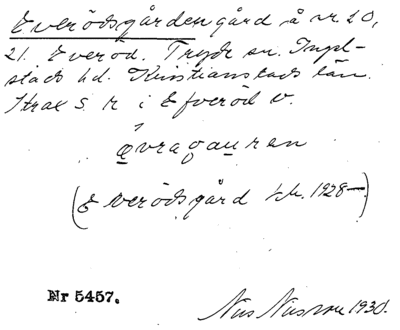 Everödsgården gård å nr 20,
21. Everöd. Tryde sn. Ingel-
stads hd. Kristianstads län.
Strax S r i Efveröd v.
ǫvragauren
(Everödsgård kk. 1928—)
Nr 5457.
Nils Nilsson 1930.